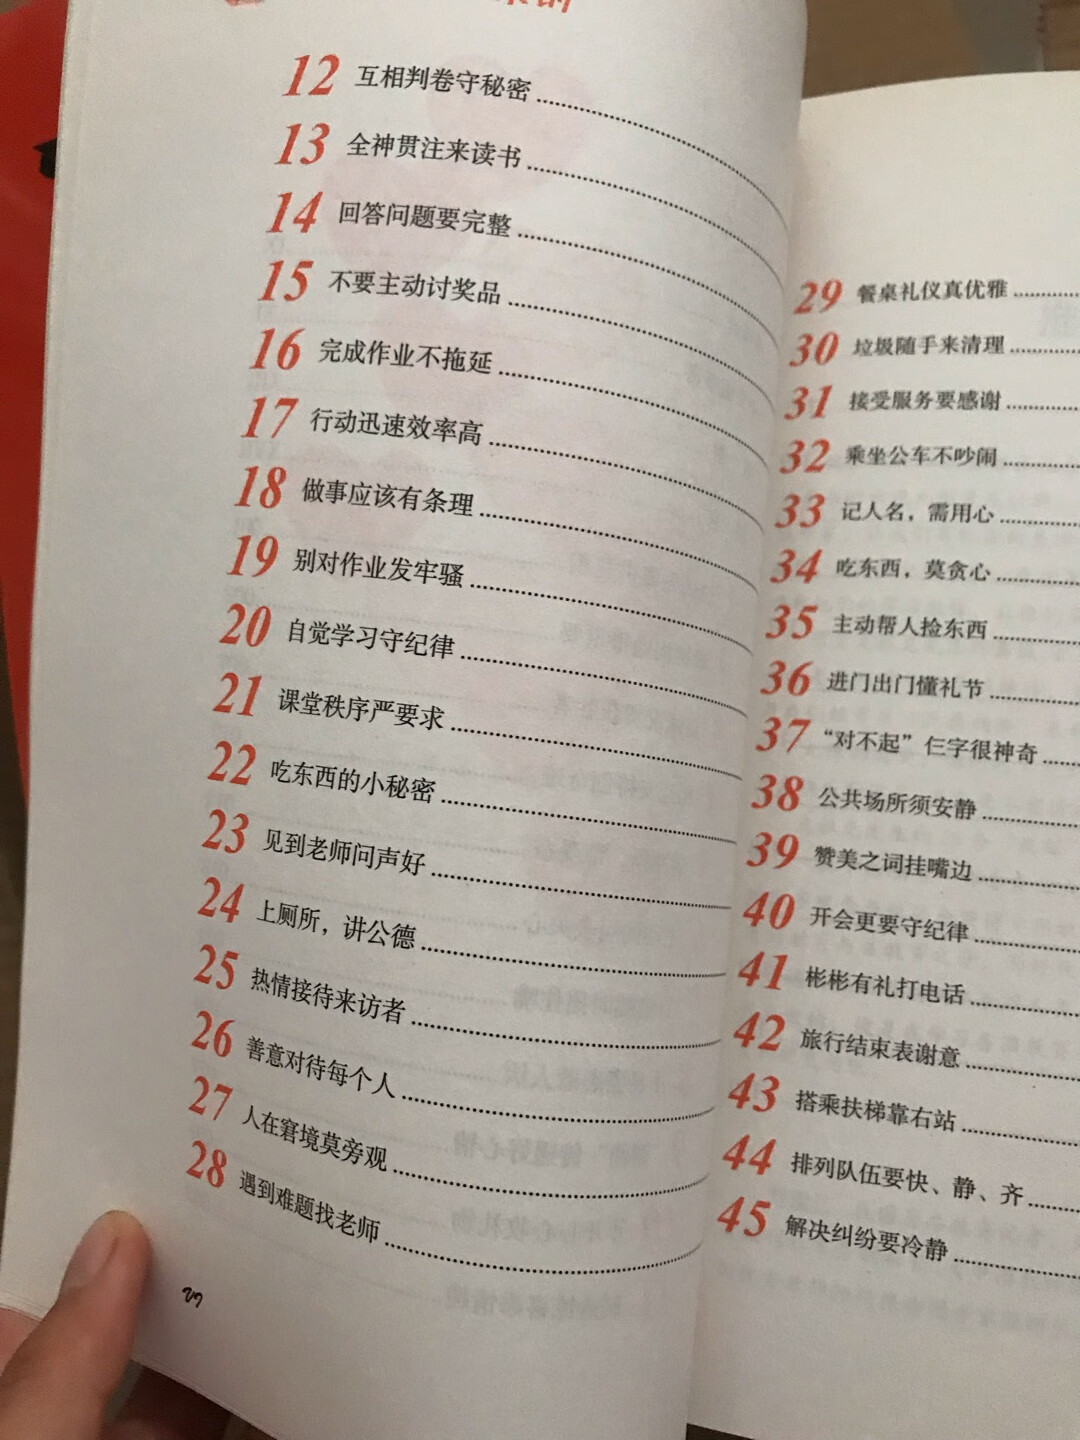 12 互相判卷守秘密
13 全神贯注来读书
14 回答问题要完整
15 不要主动讨奖品
16 完成作业不拖延
17 行动迅速效率高
18 做事应该有条理
19 别对作业发牢骚
20 自觉学习守纪律
21 课堂秩序严要求
22 吃东西的小秘密
23 见到老师问声好
24 上厕所，讲公德
25 热情接待来访者
26 善意对待每个人
27 人在窘境莫旁观
28 遇到难题找老师
29 餐桌礼仪真优雅
30 垃圾随手来清理
31 接受服务要感谢
32 乘坐公车不吵闹
33 记人名，需用心
34 吃东西，莫贪心
35 主动帮人捡东西
36 进门出门懂礼节
37 “对不起”仨字很神奇
38 公共场所须安静
39 赞美之词挂嘴边
40 开会更要守纪律
41 彬彬有礼打电话
42 旅行结束表谢意
43 搭乘扶梯靠右站
44 排列队伍要快、静、齐
45 解决纠纷要冷静